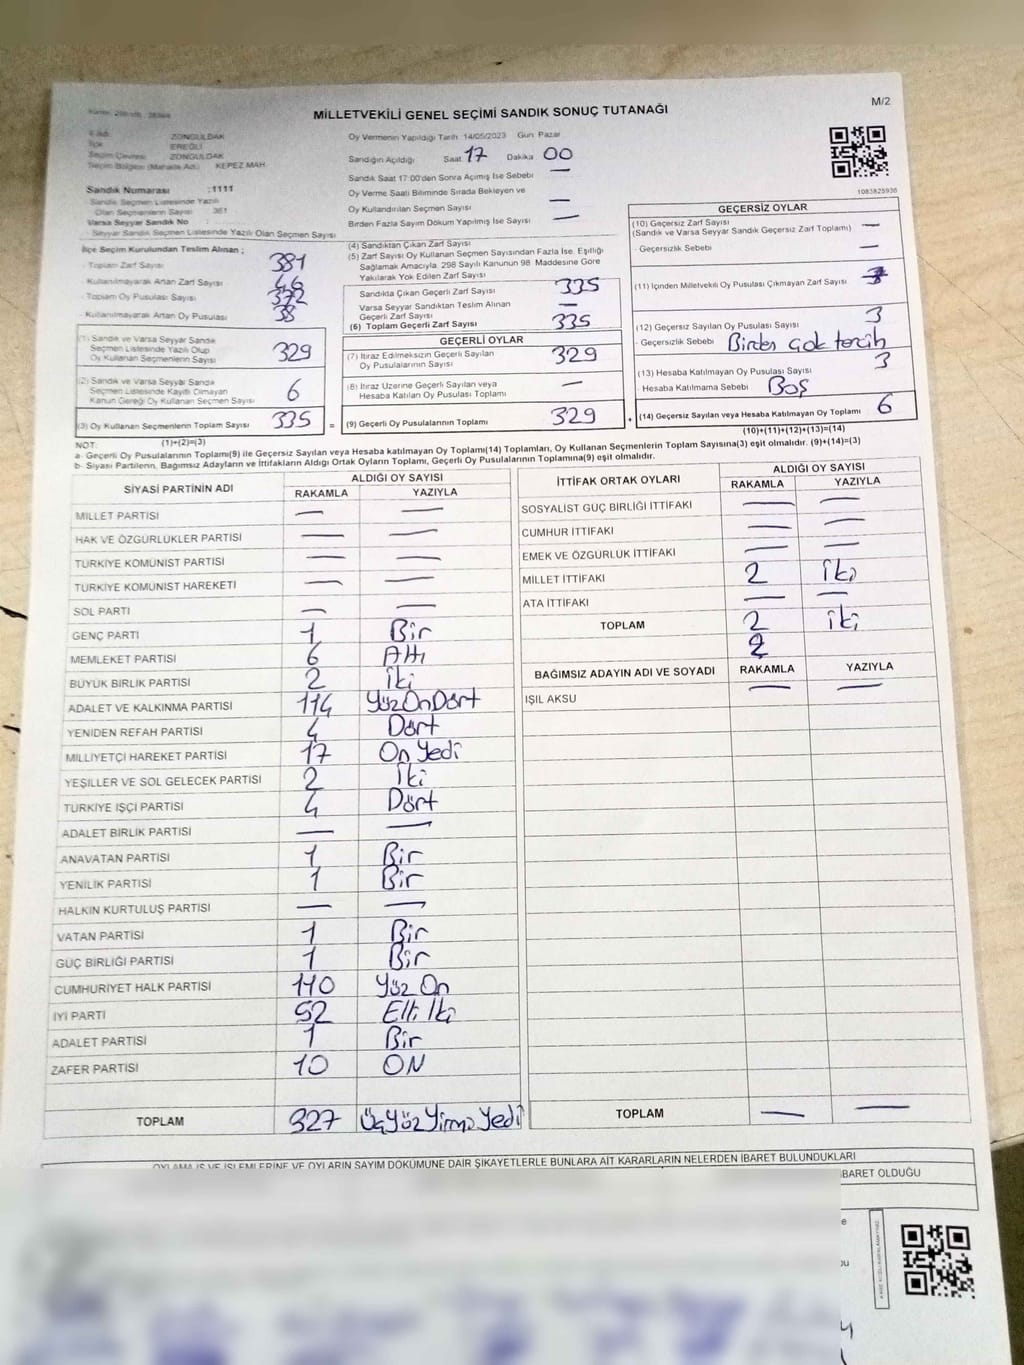 M/2
MİLLETVEKİLİ GENEL SEÇİMİ SANDIK SONUÇ TUTANAĞI
ZONGULDAK
EREĞLİ
Seçim Çevresi ZONGULDAK
KEPEZ MAH.
Sandık Numarası :1111
Sandık Seçmen Listesinde Yazılı
Olan Seçmenlerin Sayısı 361
Varsa Seyyar Sandık No :
Seyyar Sandık Seçmen Listesinde Yazılı Olan Seçmen Sayısı
İlçe Seçim Kurulundan Teslim Alınan ;
- Toplam Zarf Sayısı 381
- Kullanılmayarak Artan Zarf Sayısı
- Toplam Oy Pusulası Sayısı 372
- Kullanılmayarak Artan Oy Pusulası 38
(1) Sandık ve Varsa Seyyar Sandık
Seçmen Listesinde Yazılı Olup
Oy Kullanan Seçmenlerin Sayısı 329
(2) Sandık ve Varsa Seyyar Sandık
Seçmen Listesinde Kayıtlı Olmayan
Kanun Gereği Oy Kullanan Seçmen Sayısı 6
(3) Oy Kullanan Seçmenlerin Toplam Sayısı 335 =
(1)+(2)=(3)
Oy Vermenin Yapıldığı Tarih 14/05/2023 Gün Pazar
Sandığın Açıldığı Saat 17 Dakika 00
Sandık Saat 17:00'den Sonra Açılmış İse Sebebi —
Oy Verme Saati Bitiminde Sırada Bekleyen ve
Oy Kullandırılan Seçmen Sayısı —
Birden Fazla Sayım Döküm Yapılmış İse Sayısı —
(4) Sandıktan Çıkan Zarf Sayısı
(5) Zarf Sayısı Oy Kullanan Seçmen Sayısından Fazla İse, Eşitliği
Sağlamak Amacıyla, 298 Sayılı Kanunun 98. Maddesine Göre
Yakılarak Yok Edilen Zarf Sayısı
Sandıkta Çıkan Geçerli Zarf Sayısı 335
Varsa Seyyar Sandıktan Teslim Alınan
Geçerli Zarf Sayısı —
(6) Toplam Geçerli Zarf Sayısı 335
GEÇERLİ OYLAR
(7) İtiraz Edilmeksizin Geçerli Sayılan
Oy Pusulalarının Sayısı 329
(8) İtiraz Üzerine Geçerli Sayılan veya
Hesaba Katılan Oy Pusulası Toplamı —
(9) Geçerli Oy Pusulalarının Toplamı 329 +
1083825936
GEÇERSİZ OYLAR
(10) Geçersiz Zarf Sayısı
(Sandık ve Varsa Seyyar Sandık Geçersiz Zarf Toplamı) —
- Geçersizlik Sebebi —
(11) İçinden Milletvekili Oy Pusulası Çıkmayan Zarf Sayısı
(12) Geçersiz Sayılan Oy Pusulası Sayısı 3
- Geçersizlik Sebebi Birden çok tercih
(13) Hesaba Katılmayan Oy Pusulası Sayısı 3
- Hesaba Katılmama Sebebi Boş
(14) Geçersiz Sayılan veya Hesaba Katılmayan Oy Toplamı 6
(10)+(11)+(12)+(13)=(14)
NOT:
a- Geçerli Oy Pusulalarının Toplamı(9) ile Geçersiz Sayılan veya Hesaba katılmayan Oy Toplamı(14) Toplamları, Oy Kullanan Seçmenlerin Toplam Sayısına(3) eşit olmalıdır. (9)+(14)=(3)
b- Siyasi Partilerin, Bağımsız Adayların ve İttifakların Aldığı Ortak Oyların Toplamı, Geçerli Oy Pusulalarının Toplamına(9) eşit olmalıdır.
SİYASİ PARTİNİN ADI ALDIĞI OY SAYISI
RAKAMLA YAZIYLA
MİLLET PARTİSİ — —
HAK VE ÖZGÜRLÜKLER PARTİSİ — —
TÜRKİYE KOMÜNİST PARTİSİ — —
TÜRKİYE KOMÜNİST HAREKETİ — —
SOL PARTİ — —
GENÇ PARTİ 1 Bir
MEMLEKET PARTİSİ 6 Altı
BÜYÜK BİRLİK PARTİSİ 2 İki
ADALET VE KALKINMA PARTİSİ 114 YüzOnDört
YENİDEN REFAH PARTİSİ 4 Dört
MİLLİYETÇİ HAREKET PARTİSİ 17 On yedi
YEŞİLLER VE SOL GELECEK PARTİSİ 2 İki
TÜRKİYE İŞÇİ PARTİSİ 4 Dört
ADALET BİRLİK PARTİSİ — —
ANAVATAN PARTİSİ 1 Bir
YENİLİK PARTİSİ 1 Bir
HALKIN KURTULUŞ PARTİSİ — —
VATAN PARTİSİ 1 Bir
GÜÇ BİRLİĞİ PARTİSİ 1 Bir
CUMHURİYET HALK PARTİSİ 110 Yüz On
İYİ PARTİ 52 Elli İki
ADALET PARTİSİ 1 Bir
ZAFER PARTİSİ 10 ON
TOPLAM 327 ÜçYüzYirmiYedi
İTTİFAK ORTAK OYLARI ALDIĞI OY SAYISI
RAKAMLA YAZIYLA
SOSYALİST GÜÇ BİRLİĞİ İTTİFAKI — —
CUMHUR İTTİFAKI — —
EMEK VE ÖZGÜRLÜK İTTİFAKI — —
MİLLET İTTİFAKI 2 İki
ATA İTTİFAKI — —
TOPLAM 2 iki
2
BAĞIMSIZ ADAYIN ADI VE SOYADI RAKAMLA YAZIYLA
IŞIL AKSU — —
TOPLAM — —
OYLAMA İŞ VE İŞLEMLERİNE VE OYLARIN SAYIM DÖKÜMÜNE DAİR ŞİKAYETLERLE BUNLARA AİT KARARLARIN NELERDEN İBARET BULUNDUKLARI
İBARET OLDUĞU